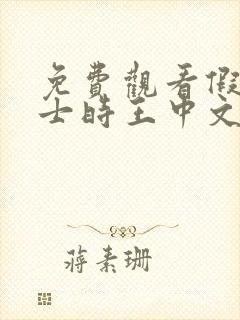 免費觀看假
士時王中文
蔣素珊